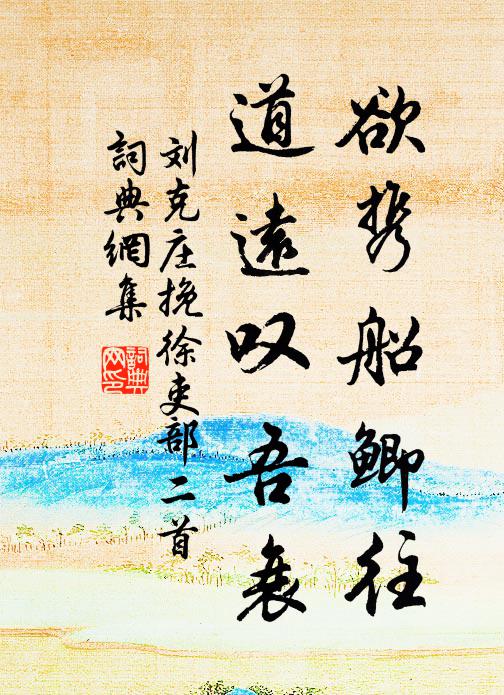 欲携船鲫往
道遠叹吾衰
刘克庄挽徐吏部二首
詞典網集
詞典
网印